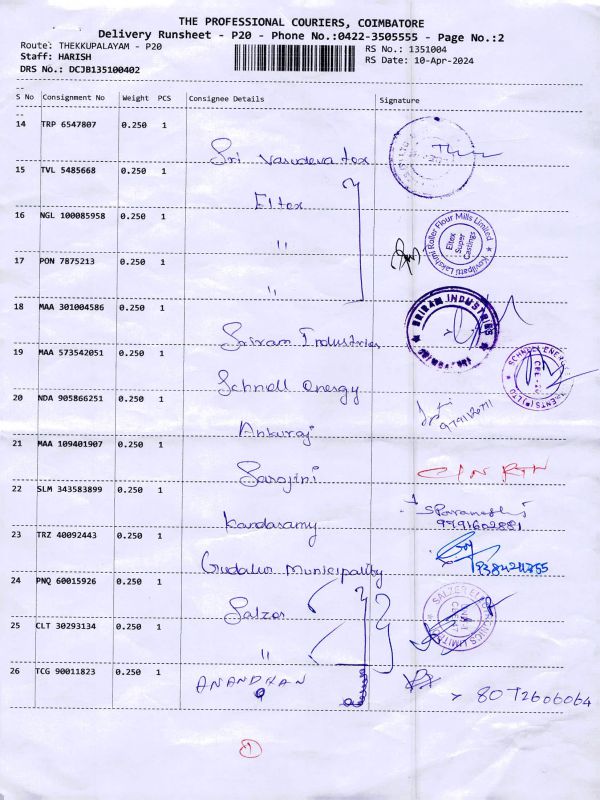 THE PROFESSIONAL COURIERS, COIMBATORE
Delivery Runsheet - P20 - Phone No.:0422-3505555 - Page No.:2
Route: THEKKUPALAYAM - P20
RS No.: 1351004
Staff: HARISH
RS Date: 10-Apr-2024
DRS No.: DCJB135100402
S No Consignment No Weight PCS Consignee Details Signature
14 TRP 6547807 0.250 1
Sri Vasudeva tex
15 TVL 5485668 0.250 1
Eltex
16 NGL 100085958 0.250 1
"
Kovilpatti Lakshmi Roller Flour Mills Limited
Eltex
Super
Castings
17 PON 7875213 0.250 1
"
18 MAA 301004586 0.250 1
Sriram Industries
SRIRAM INDUSTRIES
19 MAA 573542051 0.250 1
Schnell energy
20 NDA 905866251 0.250 1
Ankuraj
21 MAA 109401907 0.250 1
Sarojini
22 SLM 343583899 0.250 1
Kandasamy
9791602881
23 TRZ 40092443 0.250 1
Gudalur Municipality
24 PNQ 60015926 0.250 1
Salzer
25 CLT 30293134 0.250 1
"
26 TCG 90011823 0.250 1
ANANDHAN
8072606064